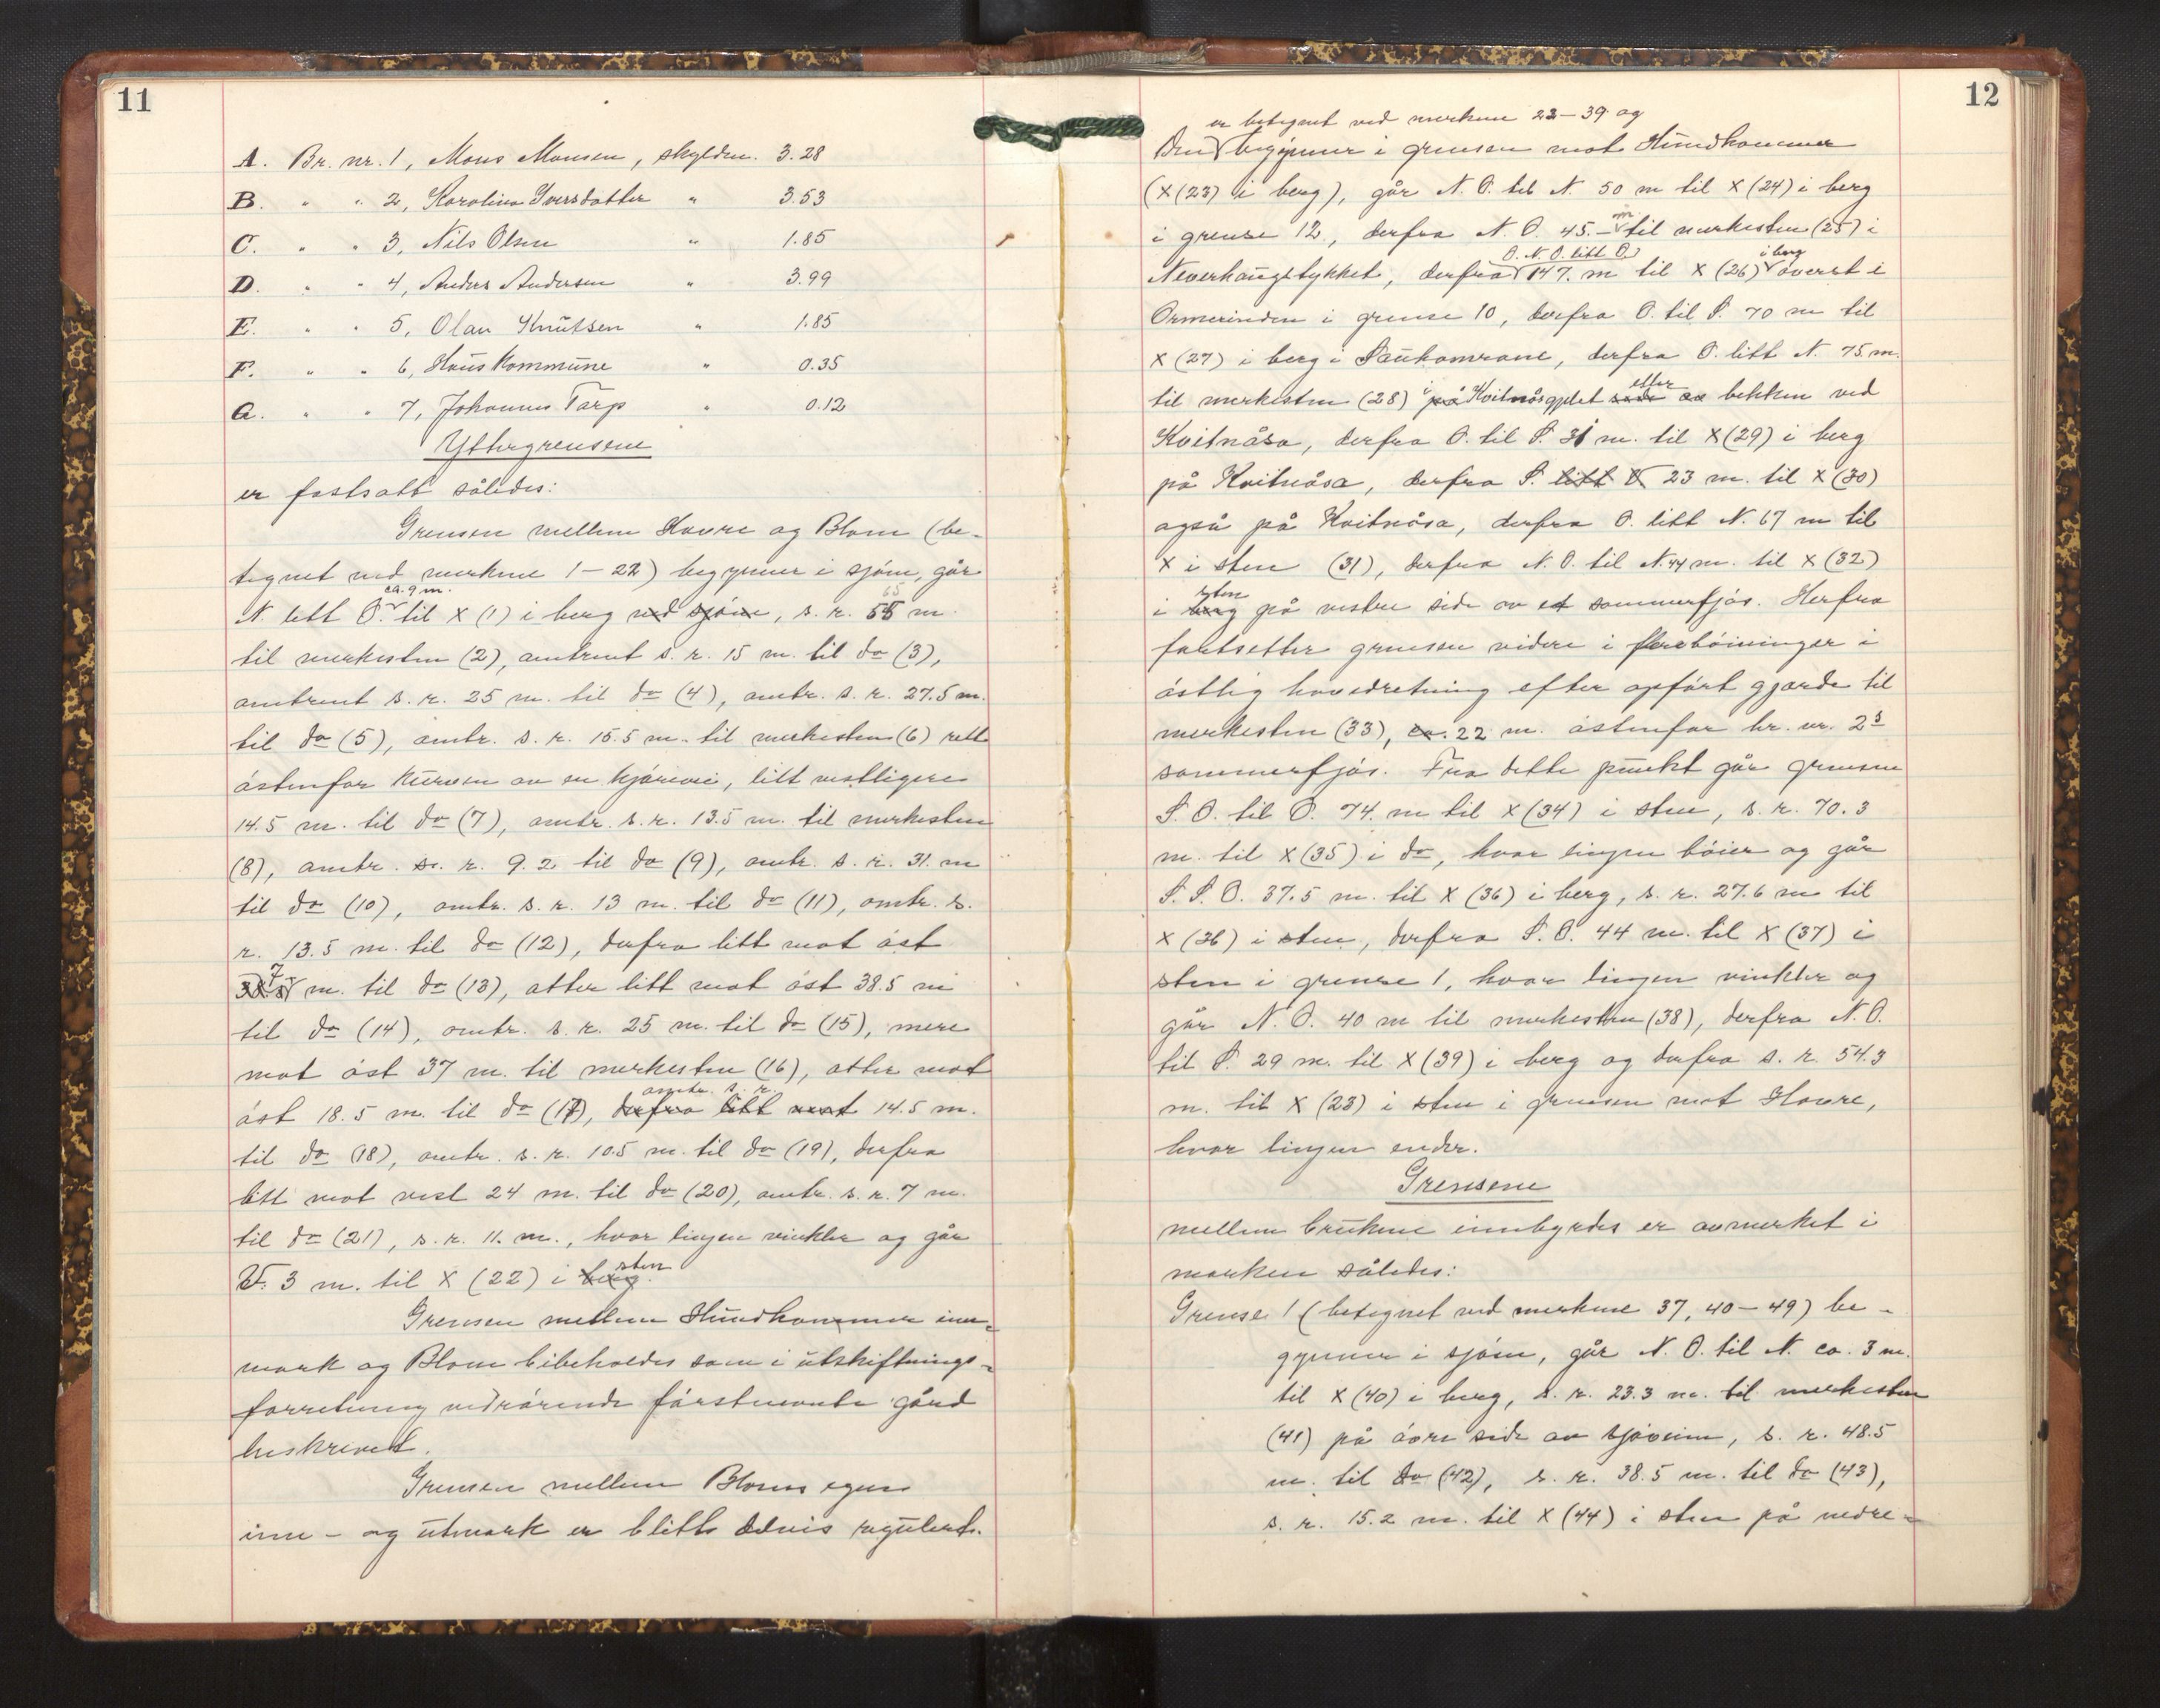 11
A. Br. nr. 1, Mons Monsen, skylden. 3.28
B. " " 2, Karolina Iversdatter " 3.53
C. " " 3, Nils Olsen " 1.85
D. " " 4, Anders Andersen " 3.99
E. " " 5, Olav Knutsen " 1.85
F. " " 6, Haus kommune " 0.35
G. " " 7, Johannes Tarp " 0.12
Yttergrensene
er fastsatt således:
Grensen mellem Hovre og Blom (be-
tegnet ved merkene 1-22) begynner i sjøen, går
N. litt Ø. ca. 9 m. til X (1) i berg ved sjøen, s. r. 65 m.
til merkesten (2), omtrent s. r. 15 m. til do (3),
omtrent s. r. 25 m. til do (4), omtr. s. r. 27.5 m.
til do (5), omtr. s. r. 15.5 m. til merkesten (6) rett
østenfor kurven av en kjørevei, litt vestligere
14.5 m. til do (7), omtr. s. r. 13.5 m. til merkesten
(8), omtr. s. r. 9.2 til do (9), omtr. s. r. 31. m
til do (10), omtr. s. r. 13 m. til do (11), omtr. s.
r. 13.5 m. til do (12), derfra litt mot øst
38.5 7 m. til do (13), atter litt mot øst 38.5 m
til do (14), omtr. s. r. 25 m. til do (15), mere
mot øst 37 m. til merkesten (16), atter mot
øst 18.5 m. til do (17), derfra litt mot omtr. s. r. 14.5 m.
til do (18), omtr. s. r. 10.5 m. til do (19), derfra
litt mot vest 24 m. til do (20), omtr. s. r. 7 m.
til do (21), s. r. 11. m., hvor linjen vinkler og går
V. 3 m. til X (22) i berg sten.
Grensen mellem Hundhammer inn-
mark og Blom bibeholdes som i utskiftnings-
forretning vedrørende førstnevnte gård
beskrevet.
Grensen mellem Bloms egen
inn- og utmark er blitt delvis regulert.
12
er betegnet ved merkene 23-39 og
Den begynner i grensen mot Hundhammer
(X (23) i berg), går N. Ø. til N. 50 m til X (24) i berg
i grense 12, derfra N. Ø. 45. m til merkesten (25) i
Neverhaugstykket, derfra Ø. N. Ø. litt Ø. 147. m til X (26) i berg øverst i
Ormerinden i grense 10, derfra Ø. til S. 70 m til
X (27) i berg i Sauhamrane, derfra Ø. litt N. 75 m.
til merkesten (28) i på Kvitnåsgjelet side av efter bekken ved
Kvitnåsa, derfra Ø. til S. 31 m. til X (29) i berg
på Kvitnåsa, derfra S. litt V. 23 m. til X (30)
også på Kvitnåsa, derfra Ø. litt N. 67 m til
X i sten (31), derfra N. Ø. til N. 44 m. til X (32)
i berg sten på vestre side av et sommerfjøs. Herfra
fortsetter grensen videre i flere bøininger i
østlig hovedretning efter opført gjerde til
merkesten (33), ca. 22 m. østenfor br. nr. 2s
sommerfjøs. Fra dette punkt går grensen
S. Ø. til Ø. 74. m til X (34) i sten, s. r. 70.3
m. til X (35) i do, hvor linjen bøier og går
S. S. Ø. 37.5 m. til X (36) i berg, s. r. 27.6 m til
X (36) i sten, derfra S. Ø. 44 m. til X (37) i
sten i grense 1, hvor linjen vinkler og
går N. Ø. 40 m til merkesten (38), derfra N. Ø.
til S. 29 m. til X (39) i berg og derfra s. r. 54.3
m. til X (23) i sten i grensen mot Hovre,
hvor linjen ender.
Grensene
mellem brukene innbyrdes er avmerket i
marken således:
Grense 1 (betegnet ved merkene 37, 40-49) be-
gynner i sjøen, går N. Ø. til N. ca. 3 m.
til X (40) i berg, s. r. 23.3 m. til merkesten
(41) på øvre side av sjøveien, s. r. 48.5
m. til do (42), s. r. 38.5 m. til do (43),
s. r. 15.2 m. til X (44) i sten på nedre-